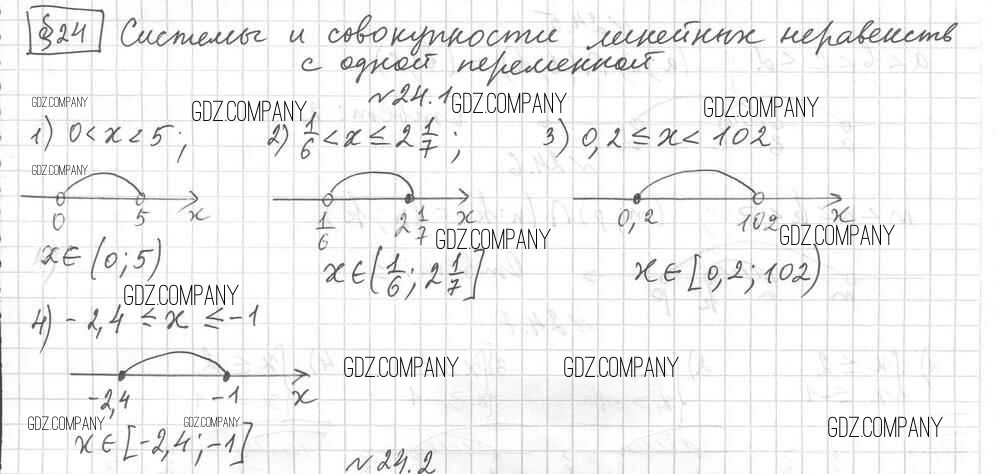 §24 Системы и совокупности линейных неравенств
с одной переменной
№24.1
GDZ.COMPANY GDZ.COMPANY GDZ.COMPANY GDZ.COMPANY
1) 0 < x < 5; 2) 1/6 < x ≤ 2 1/7; 3) 0,2 ≤ x < 102
GDZ.COMPANY
0 5 x 1/6 2 1/7 x 0,2 102 x
GDZ.COMPANY GDZ.COMPANY
x ∈ (0; 5) x ∈ (1/6; 2 1/7] x ∈ [0,2; 102)
GDZ.COMPANY
4) -2,4 ≤ x ≤ -1
GDZ.COMPANY GDZ.COMPANY
-2,4 -1 x
GDZ.COMPANY GDZ.COMPANY GDZ.COMPANY
x ∈ [-2,4; -1]
№24.2